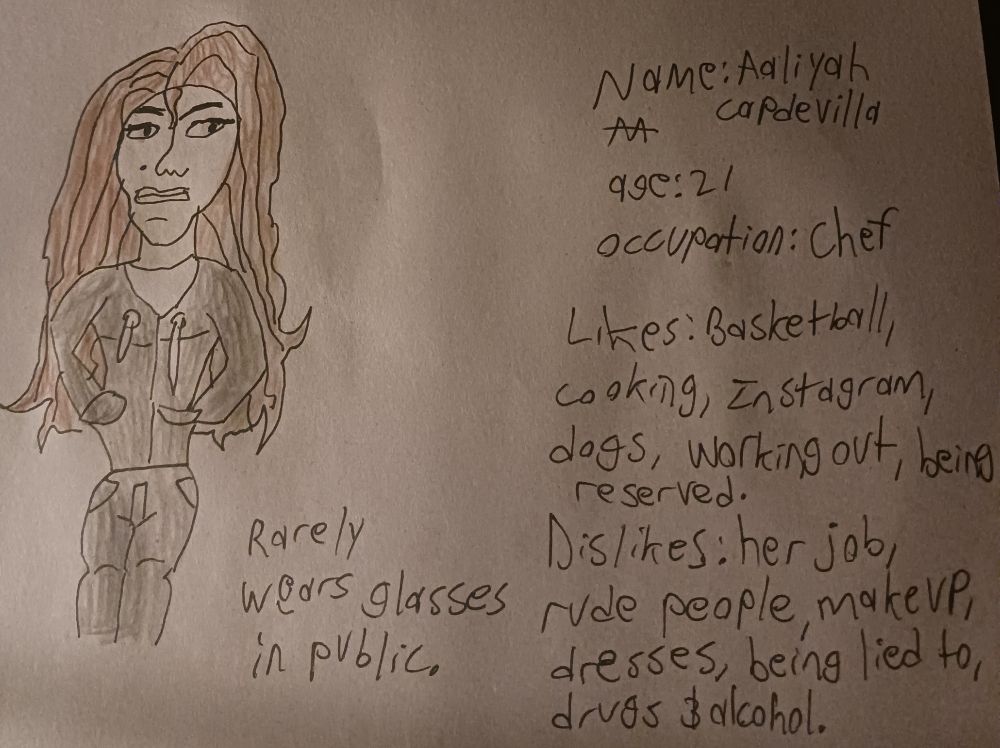 Name: Aaliyah
capdevilla
age: 21
occupation: Chef
Likes: Basketball,
cooking, Instagram,
dogs, working out, being
reserved.
Dislikes: her job,
rude people, makeup,
dresses, being lied to,
drugs & alcohol.
Rarely
wears glasses
in public.